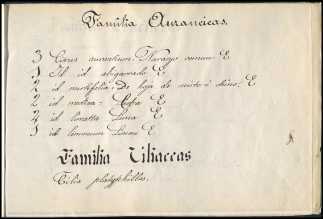 Familia Aurancieas.
3 Citrus aurantium: Naranjo comun E
1 Id id abigarrado E
2 id mirtifolia: De hoja de mirto ó chino E
2 id medica: Cidra E
4 id limetta Lima E
1 id limonum Limon E
Familia Tiliaceas
Tilia platyphillos.